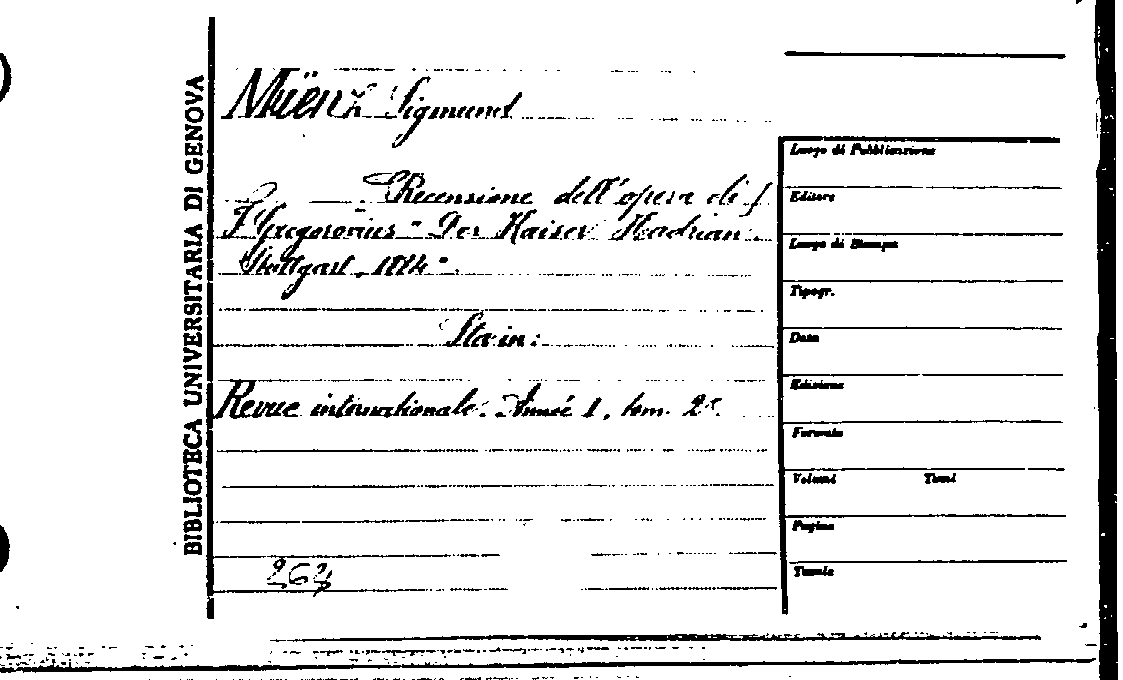 BIBLIOTECA UNIVERSITARIA DI GENOVA
Müenz Sigmund
Recensione dell'opera di
F. Gregorovius - Der Kaiser Hadrian.
Stuttgart, 1884 -.
Sta in:
Revue internationale. Année 1, tom. 2º.
Luogo di Pubblicazione
Editore
Luogo di Stampa
Tipogr.
Data
Edizione
Formato
Volumi Tomi
Pagine
Tavole